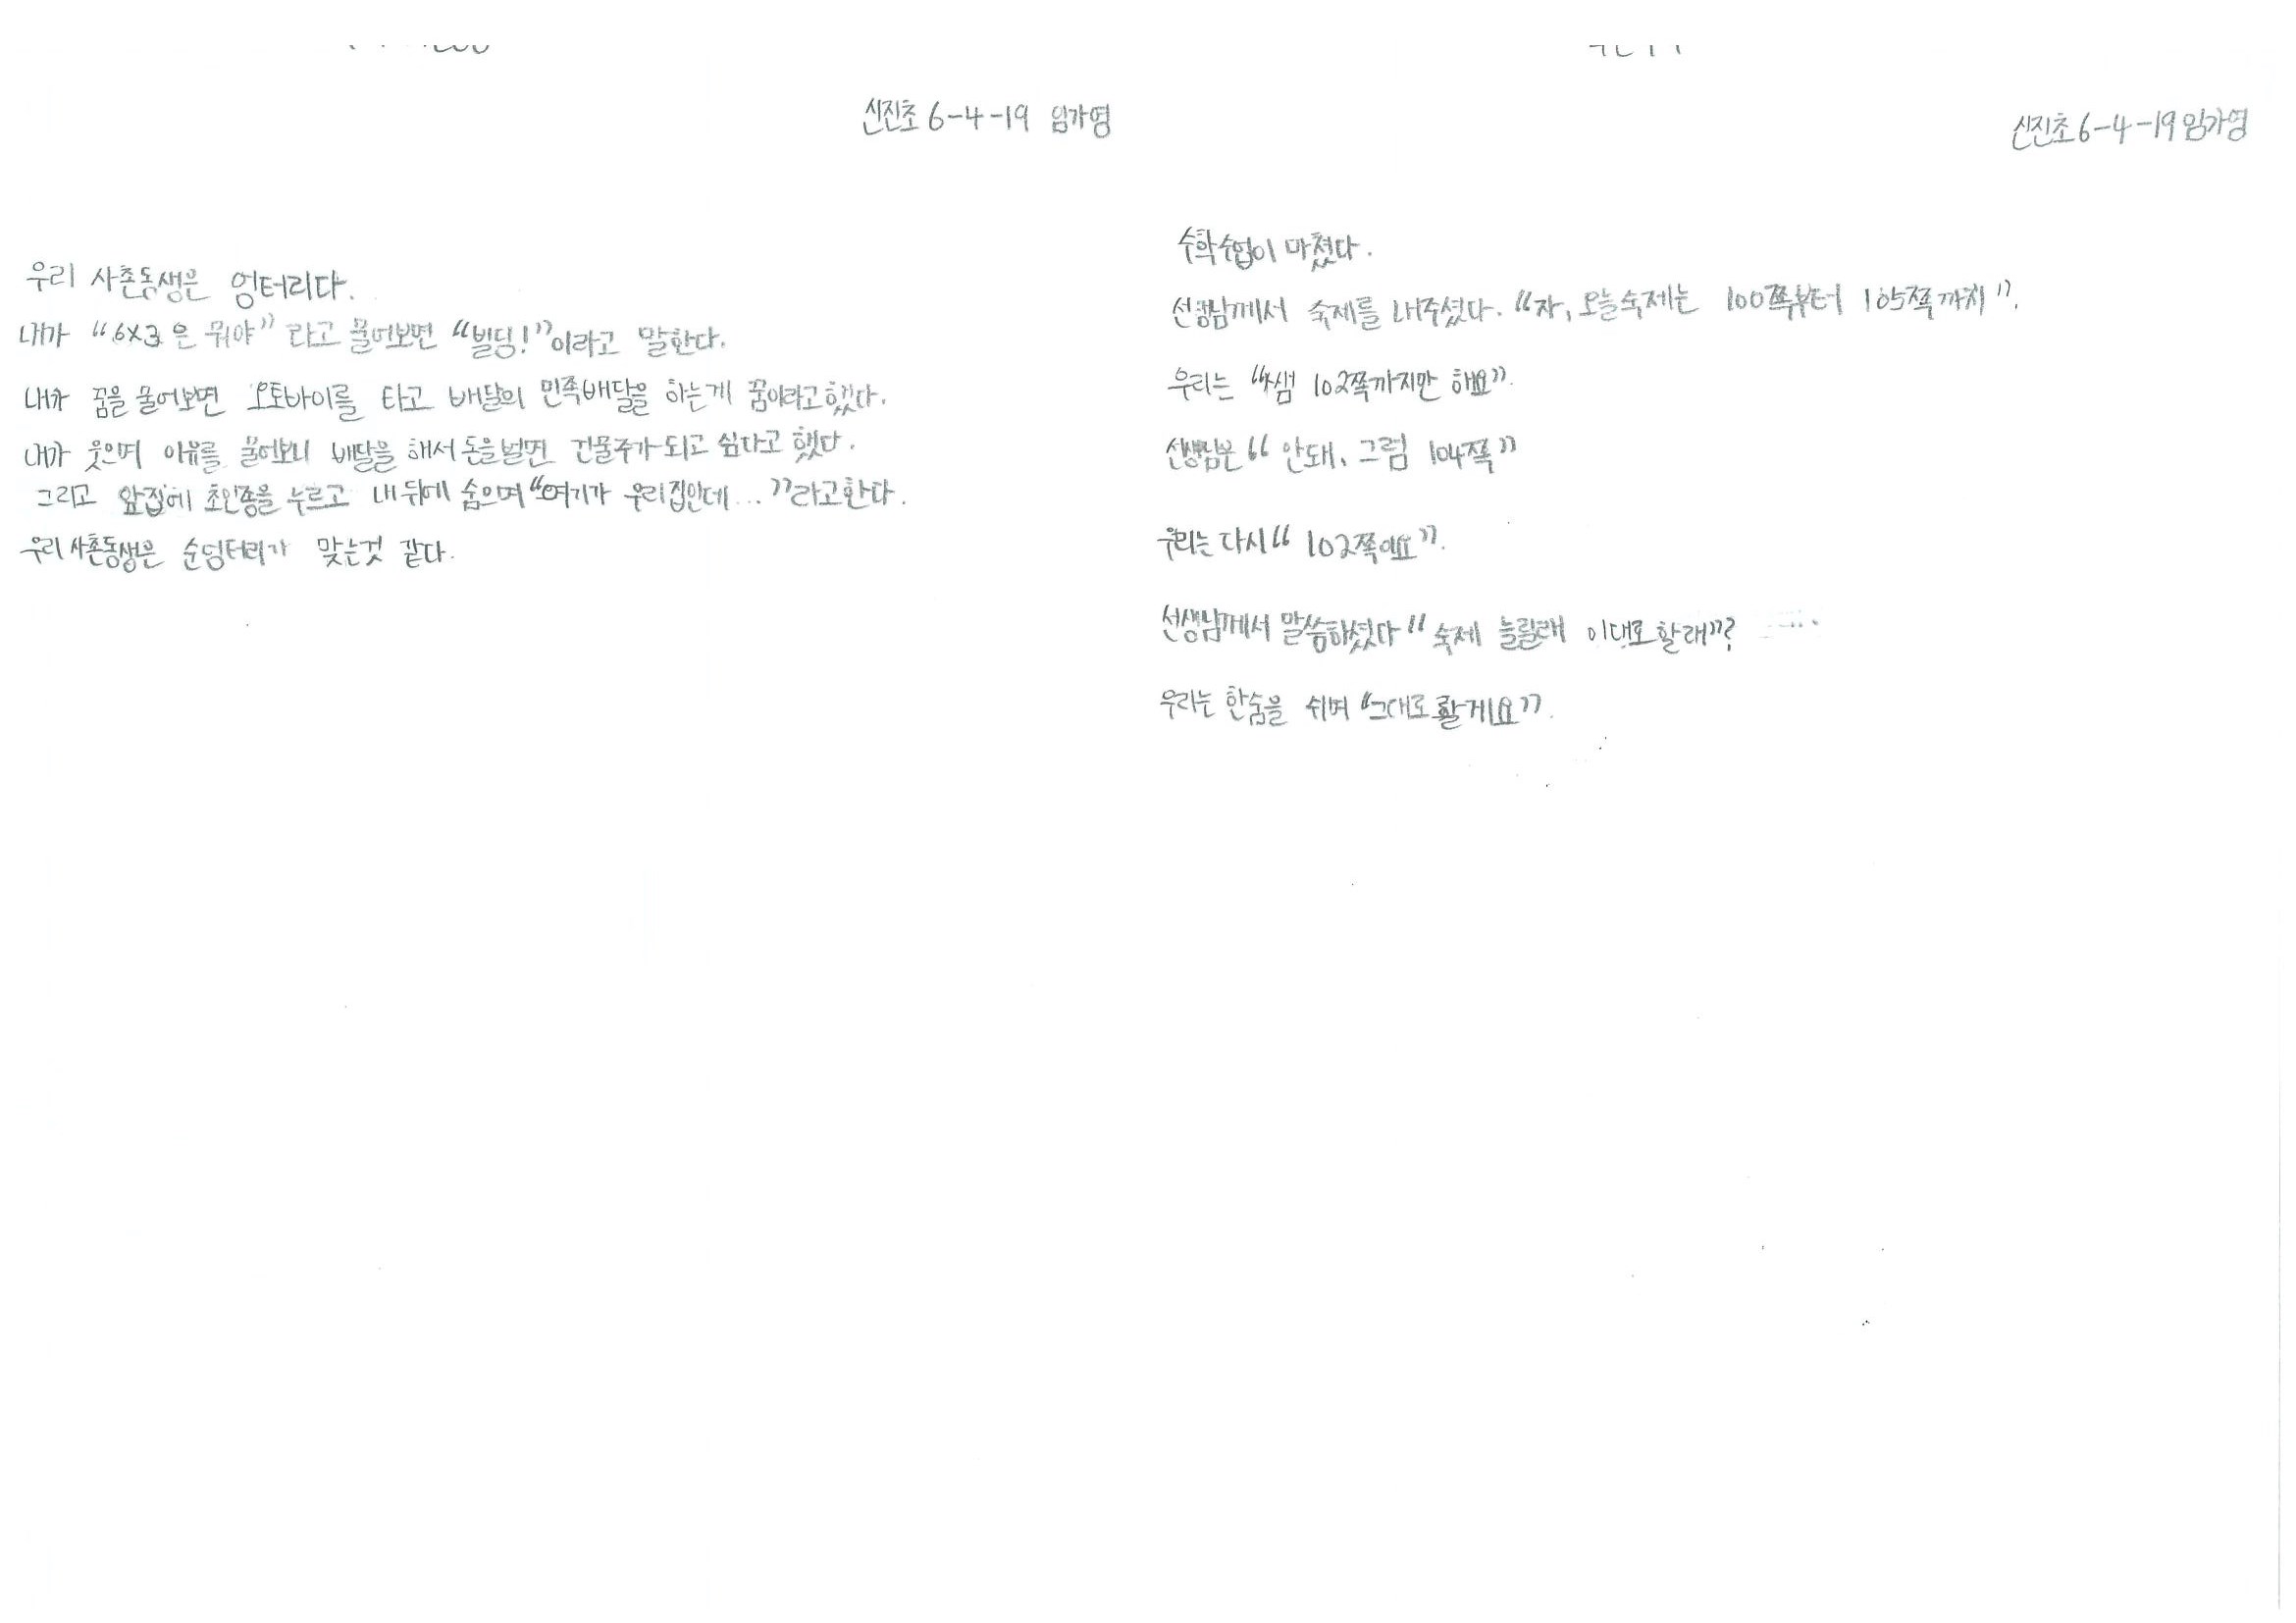 신진초 6-4-19 임가영
우리 사촌동생은 엉터리다.
내가 “6×3은 뭐야” 라고 물어보면 “빌딩!”이라고 말한다.
내가 꿈을 물어보면 오토바이를 타고 배달의 민족배달을 하는게 꿈이라고했다.
내가 웃으며 이유를 물어보니 배달을 해서 돈을벌면 건물주가 되고 싶다고 했다.
그리고 앞집에 초인종을 누르고 내 뒤에 숨으며 “여기가 우리집인데...”라고한다.
우리사촌동생은 순덩터리가 맞는것 같다.
신진초 6-4-19 임가영
수학수업이 마쳤다.
선생님께서 숙제를 내주셨다. “자, 오늘숙제는 100쪽부터 105쪽까지”.
우리는 “쌤 102쪽까지만 해요”.
선생님은 “안돼, 그럼 104쪽”
우리는 다시 “102쪽예요”.
선생님께서 말씀하셨다 “숙제 늘릴래 이대로 할래”?
우리는 한숨을 쉬며 “그대로 할게요”.